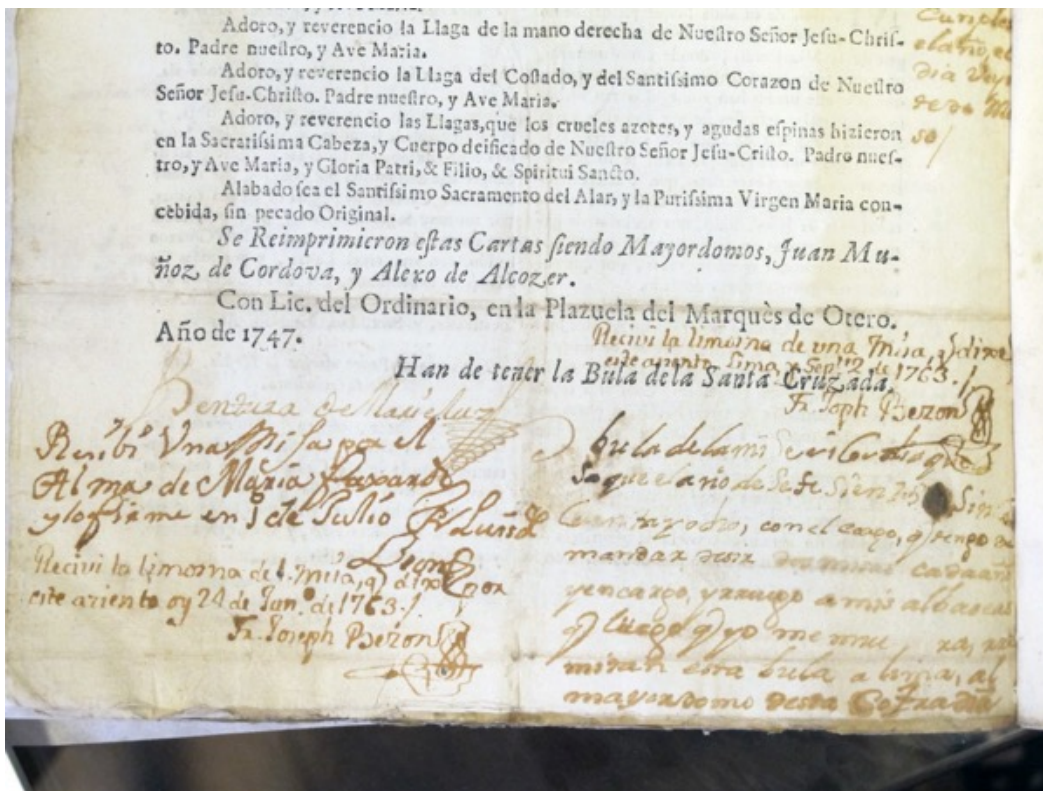 Adoro, y reverencio la Llaga de la mano derecha de Nueſtro Señor Jeſu-Chriſ-
to. Padre nueſtro, y Ave Maria.
Adoro, y reverencio la Llaga del Coſtado, y del Santiſsimo Corazon de Nueſtro
Señor Jeſu-Chriſto. Padre nueſtro, y Ave Maria.
Adoro, y reverencio las Llagas, que los crueles azotes, y agudas eſpinas hizieron
en la Sacratiſsima Cabeza, y Cuerpo deificado de Nueſtro Señor Jeſu-Criſto. Padre nueſ-
tro, y Ave Maria, y Gloria Patri, & Filio, & Spiritui Sancto.
Alabado ſea el Santiſsimo Sacramento del Alar, y la Puriſsima Virgen Maria con-
cebida, ſin pecado Original.
Se Reimprimieron eſtas Cartas ſiendo Mayordomos, Juan Mu-
ñoz de Cordova, y Alexo de Alcozer.
Con Lic. del Ordinario, en la Plazuela del Marquès de Otero.
Año de 1747.
Han de tener la Bula de la Santa Cruzada.
Cumple
el año, el
dia
de
so/
Recivi la limosna de una Misa, q̃ dixe
este aziento Lima y Sept.e 2 de 1763./
Fr. Joseph Berzon
Ventura de
Resibi Una Misa por el
Alma de Maria Faxardo
y lo firme en 5 de Julio Fr Luis de
Leon
Recivi la limosna de 1. misa, q̃ dixe por
este aziento oy 24 de Jun.o de 1763./
Fr. Joseph Berzon
bula de la mi
Saque el año de Sete Sientos Sin
Cuenta y ocho, con el cargo, q̃ tengo de
mandar desir dos misas cada año
y encargo, y rruego a mis albaceas
q̃ luego q̃ yo me mue ra, rre
mitan esta bula a lima, al
mayordomo desta Cofradia